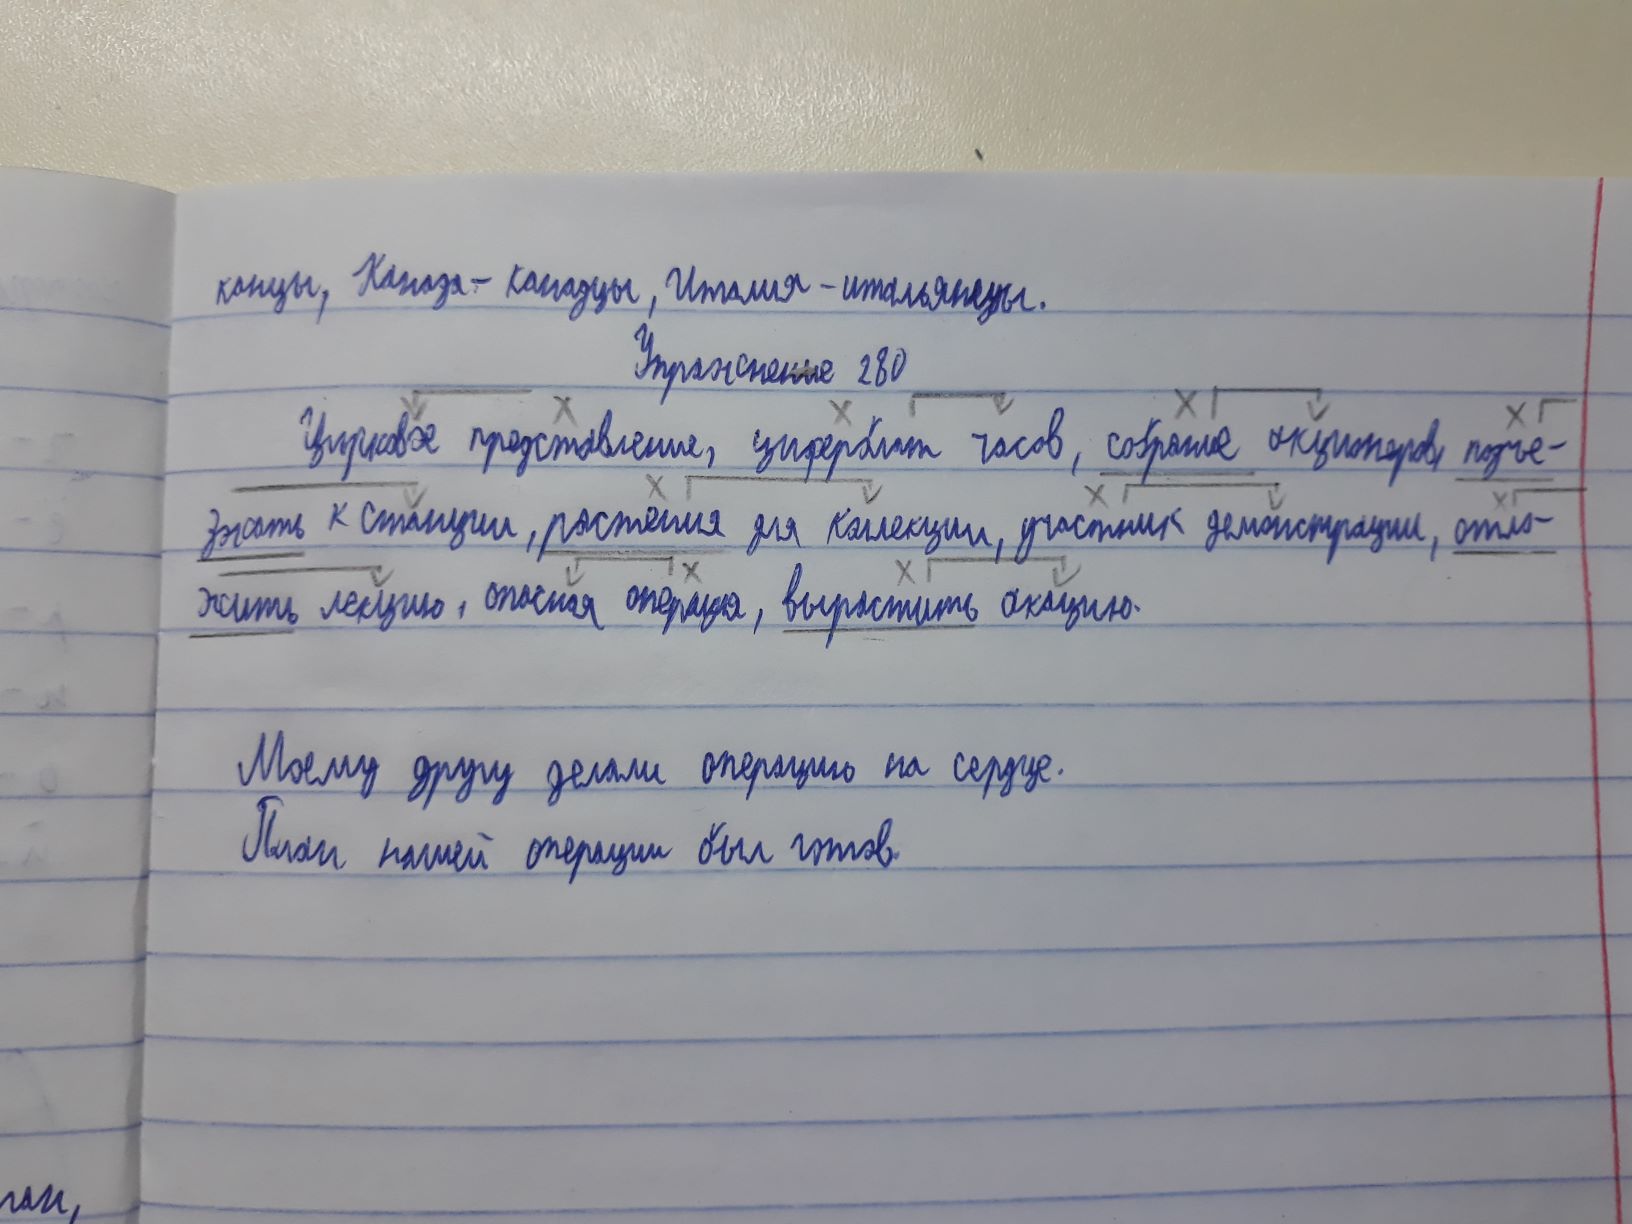 канцы, Канада - канадцы, Италия - итальянцы.
Упражнение 280
Цирковое представление, циферблат часов, собрание акционеров, подъе-
зжать к станции, растения для коллекции, участник демонстрации, отло-
жить лекцию, опасная операция, вырастить акацию.
Моему другу делали операцию на сердце.
План нашей операции был готов.